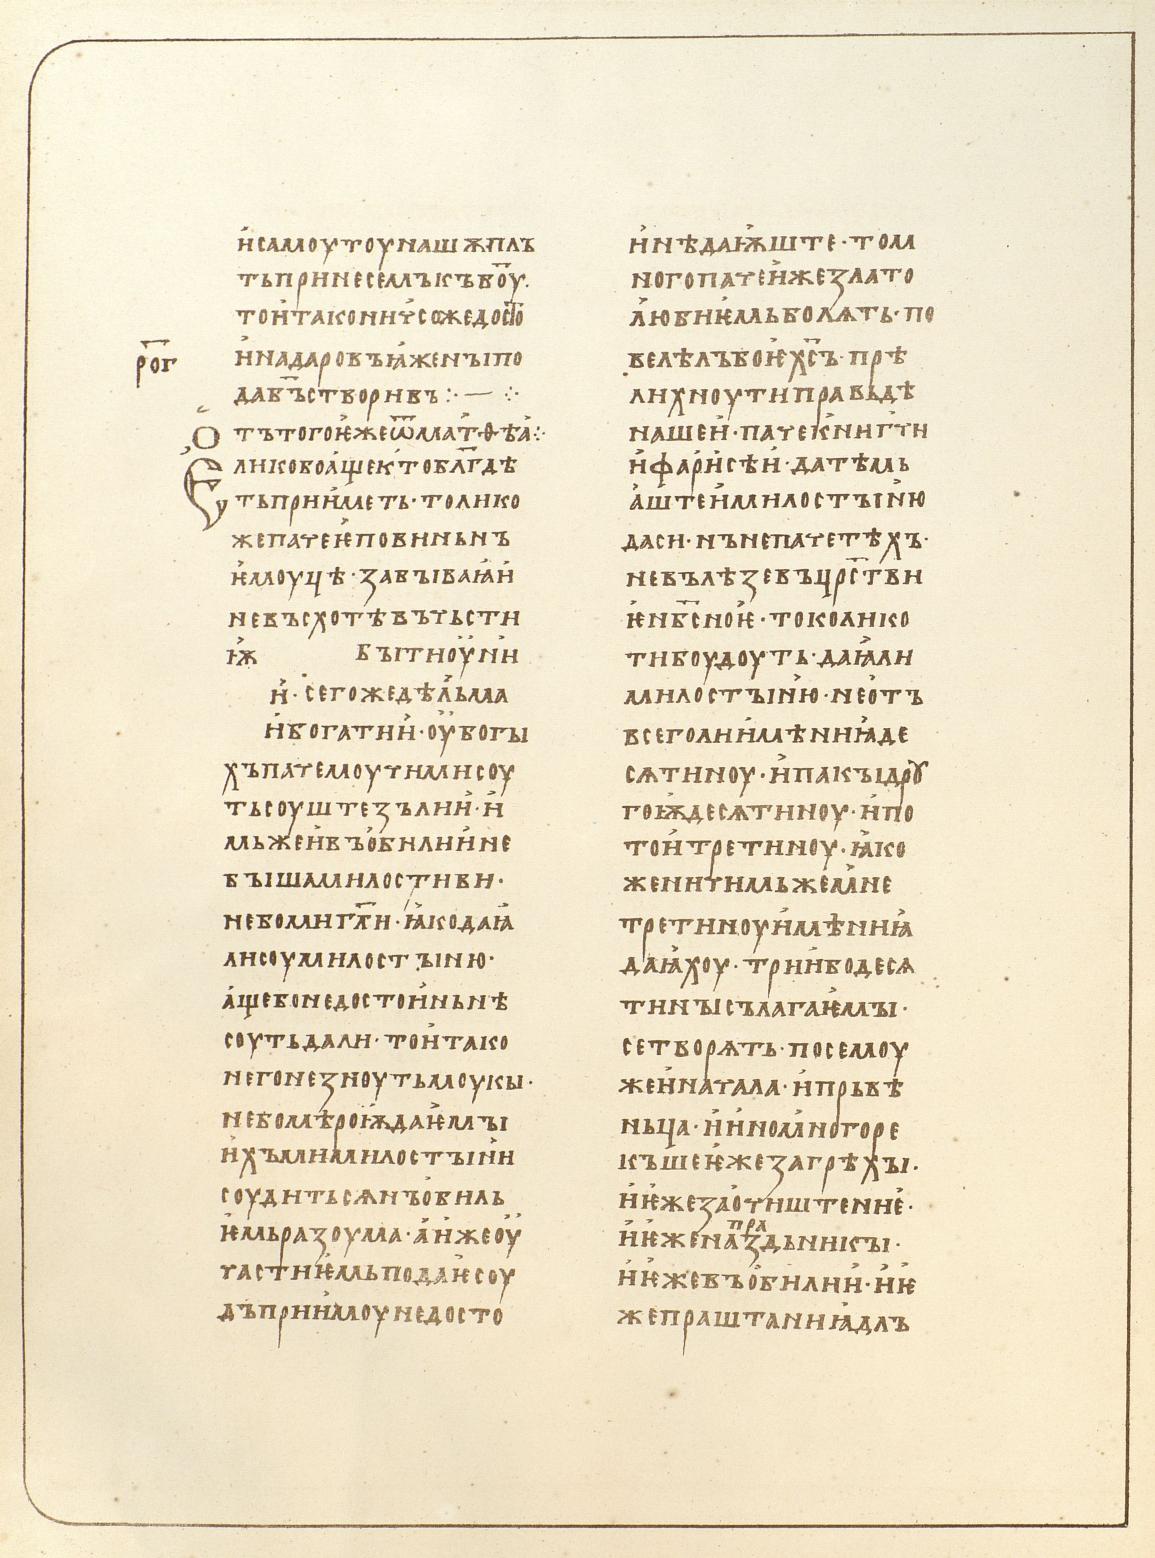 и҆самоучоунашѫплъ
тьпринесемъкъбо҃у.
то́итаконичсожедосто
р҃ог
и҆надаровъꙗ҆женъıпо
дав҃ъстворивъ:·—·:·
о҆тътогоѥ҆жеѿмат҆ѳѣа҆:·
Еликобоа҆щектоблг҃дѣ
тьприи҆меть·толико
жепачеѥ҆повиньнъ
ѥ҆моуцѣ·забъıваꙗ҆и
невъсхотѣвъчьсти
ѭ҆ бъıтиоу҆ни
и҆·сегожедѣл҆ьма
и҆богатии҆·оу҆богы
хъпачемоучимисоу
тьсоуштезълии҆·и҆
мьжеи҆въо҆билии҆не
бъıшамилостиви·
небомиг҃ли·ꙗ҆кодаꙗ҆
лисоумилостъıню·
а҆щебонедостои҆ньнѣ
соутьдали·тои҆тако
негонезноутьмоукы·
небомѣроѭ҆даѥ҆мъı
и҆хъмимилостъıни
соудитьсѧнъо҆биль
ѥ҆мьразоума·а҆ижеоу҆
частиѥ҆мьподаѥ҆соу
дъприи҆моунедосто
и҆нѣдаѭ҆ште·том
ногопачеи҆жезлато
л҆юбиѥ҆мьболѧть·по
велѣлъбоѥ҆х҃съ·прѣ
лихноутиправьдѣ
нашеи҆·пачекнигчи
и҆фари҆сѣи҆·датѣмь
а҆штеи҆милостъıню
даси·нънепачетѣхъ·
невълѣзевъцрс҃тви
ѥ҆нб҃сноѥ҆·токолико
тибоудоуть·даꙗ҆ли
милостъıн҆ю·нео҆тъ
всеголии҆мѣниꙗ҆де
сѧтиноу·и҆пакъıдрꙋ
гоѭ҆десѧтиноу·и҆по
тои҆третиноу·ꙗ҆ко
женичимьжем҆не
третиноуи҆мѣниꙗ҆
даꙗ҆хоу·трии҆бодесѧ
тинъıсълагаѥ҆мъı·
сетворѧть·посемоу
жеи҆начала·и҆прьвѣ
ньца·и҆и҆ном҆ногоре
къшеѥ҆жезагрѣхъı·
и҆ѥ҆жезао҆чиштениѥ҆·
пра
и҆ѥ҆женаздьникъı·
и҆ѥ҆жевъо҆билии҆·и҆ѥ҆
жепраштаниꙗ҆длъ